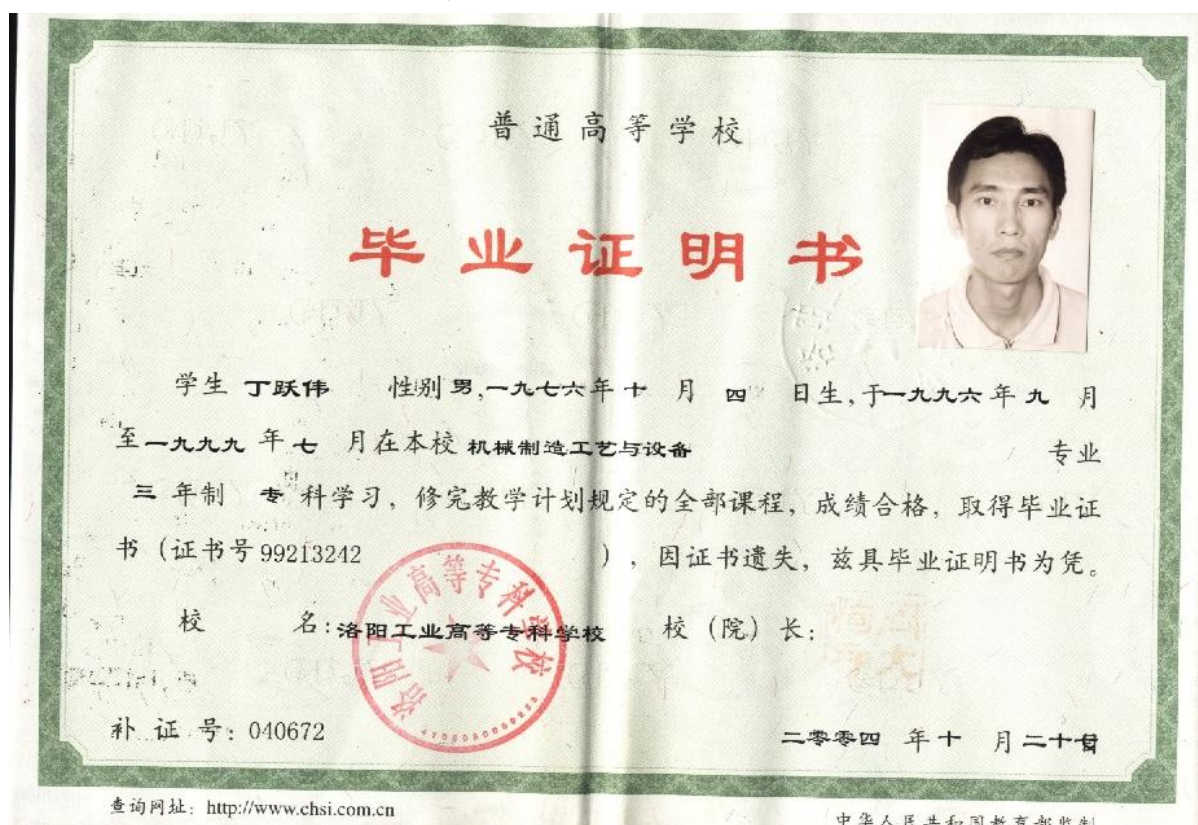 普通高等学校
毕业证明书
学生 丁跃伟 性别 男,一九七六年十 月 四 日生,于一九九六年九 月
至一九九九 年七 月在本校 机械制造工艺与设备 专业
三 年制 专 科学习,修完教学计划规定的全部课程,成绩合格,取得毕业证
书(证书号 99213242 ),因证书遗失,兹具毕业证明书为凭。
校 名:洛阳工业高等专科学校 校(院)长:
洛阳工业高等专科学校
补 证 号:040672
二零零四 年十 月二十日
查询网址:http://www.chsi.com.cn
中华人民共和国教育部监制